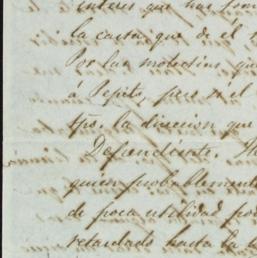 interes que has tom
la carta que de él r
Por las molestias que
á Pepito, pero si el
tpo. la direccion que
Defendiente. H
quien probablement
de poca utilidad pod
retardado hasta la